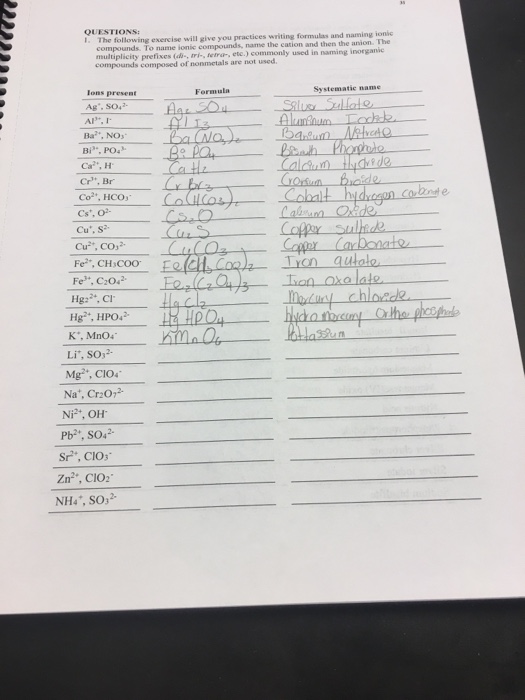 QUESTIONS:
1. The following exercise will give you practices writing formulas and naming ionic
compounds. To name ionic compounds, name the cation and then the anion. The
multiplicity prefixes (di-, tri-, tetra-, etc.) commonly used in naming inorganic
compounds composed of nonmetals are not used.
Ions present Formula Systematic name
Ag⁺, SO₄²⁻ Ag₂ SO₄ Silver Sulfate
Al³⁺, I⁻ Al I₃ Aluminum Iodide
Ba²⁺, NO₃⁻ Ba(NO₃)₂ Bareum Nitrate
Bi³⁺, PO₄³⁻ Bi PO₄
Ca²⁺, H⁻ Ca H₂ Calcium Hydride
Cr³⁺, Br⁻ Cr Br₃
Co²⁺, HCO₃⁻ Co(HCO₃)₂ Cobalt hydrogen carbonate
Cs⁺, O²⁻ Cs₂O Oxide
Cu⁺, S²⁻ Cu₂S Copper sulfide
Cu²⁺, CO₃²⁻ CuCO₃ Copper Carbonate
Fe²⁺, CH₃COO⁻ Fe(CH₃COO)₂ Iron
Fe³⁺, C₂O₄²⁻ Fe₂(C₂O₄)₃ Iron oxalate
Hg₂²⁺, Cl⁻ Hg Cl₂ Mercury chloride
Hg²⁺, HPO₄²⁻ Hg HPO₄
K⁺, MnO₄⁻ KMnO₄
Li⁺, SO₃²⁻
Mg²⁺, ClO₄⁻
Na⁺, Cr₂O₇²⁻
Ni²⁺, OH⁻
Pb²⁺, SO₄²⁻
Sr²⁺, ClO₃⁻
Zn²⁺, ClO₂⁻
NH₄⁺, SO₃²⁻